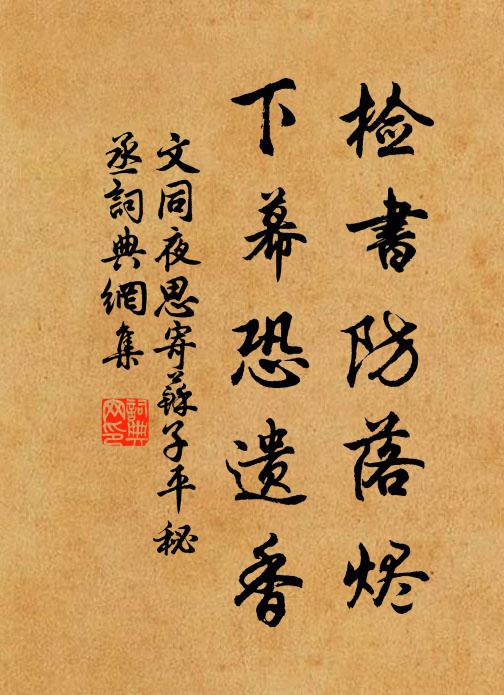 检書防落烬
下幕恐遗香
文同夜思寄蘇子平秘
丞詞典網集
詞典
网印